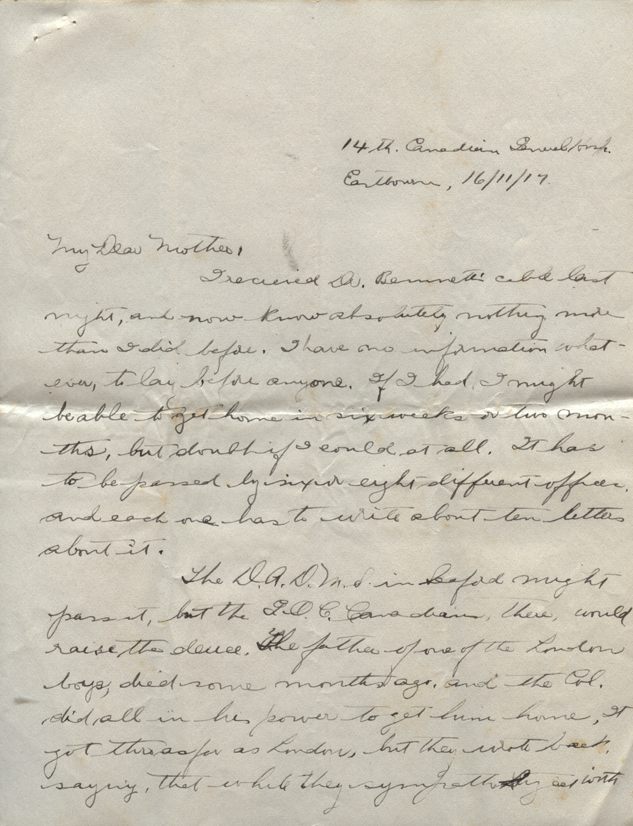 14th. Canadian General Hosp.
Eastbourne, 16/11/17.
My Dear Mother,
I recieved Dr. Bennett's cable last
night, and now know absolutely nothing more
than I did before. I have no information what-
ever, to lay before anyone. If I had, I might
be able to get home in six weeks or two mon-
ths, but doubt if I could at all. It has
to be passed by six or eight different offices,
and each one has to write about ten letters
about it.
The D.A.D.M.S. in Seaford might
pass it, but the G.O.C. Canadians, there, would
raise the deuce. The father of one of the London
boys, died some months ago, and the Col.
did all in his power to get him home, It
got thru as far as London, but they wrote back,
saying, that while they sympathized with